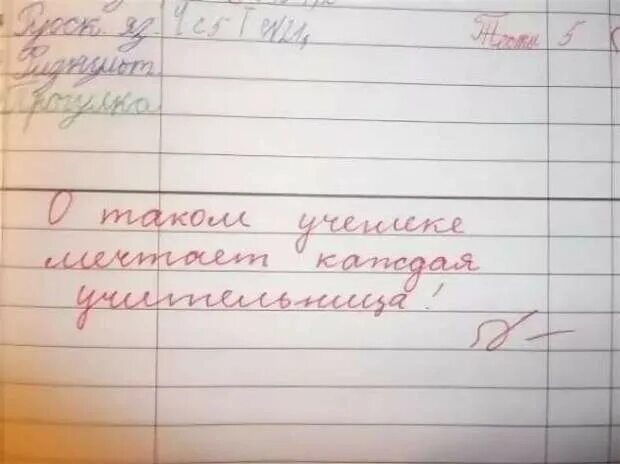 Русск. яз. Чт 5
Физкульт.
Прогулка
О таком ученике
мечтает каждая
учительница!